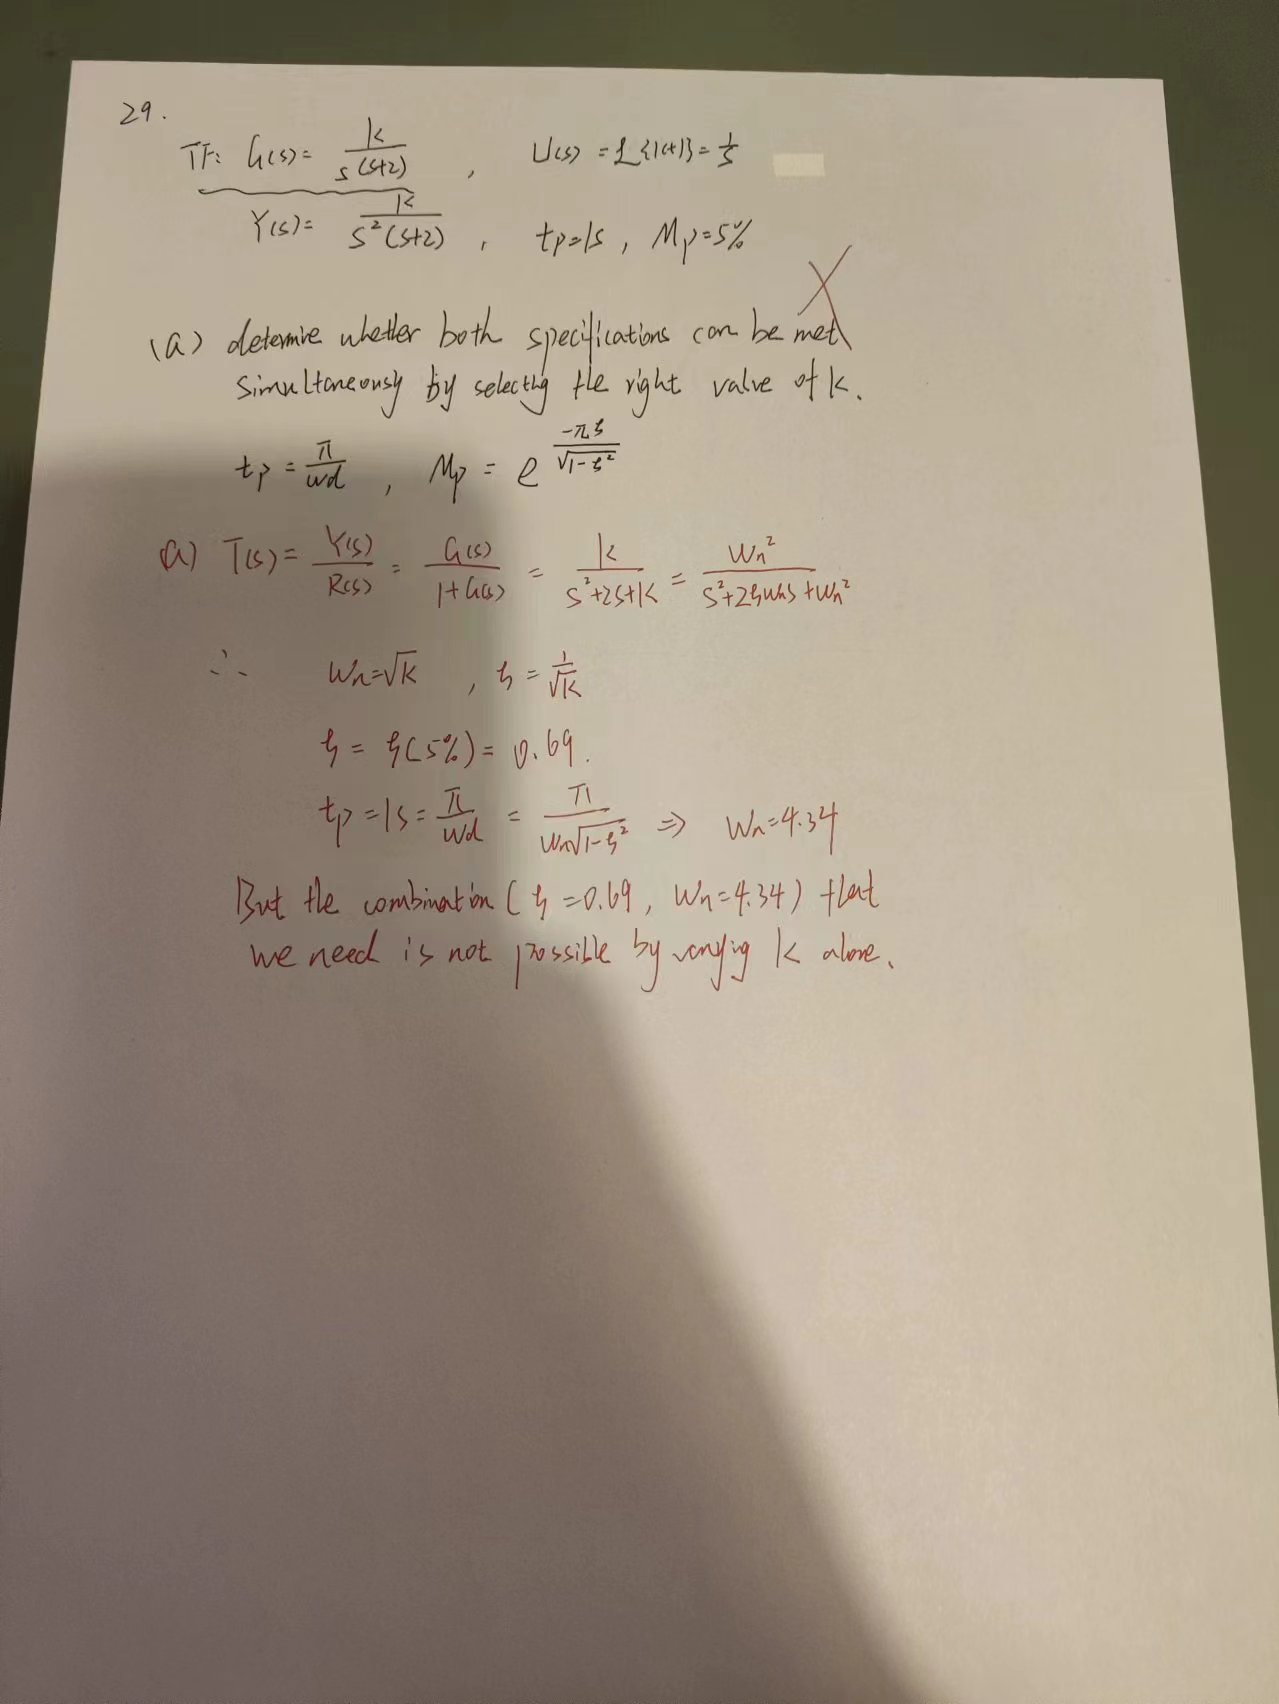 29.
TF: G(s) = K / s(s+2) , U(s) = ℒ{1(t)} = 1/s
Y(s) = K / s²(s+2) , tp=1s , Mp=5%
(a) determine whether both specifications can be met
simultaneously by selecting the right value of K.
tp = π/ωd , Mp = e^(-πζ/√(1-ζ²))
a) T(s) = Y(s)/R(s) = G(s)/(1+G(s)) = K/(s²+2s+K) = ωn²/(s²+2ζωns+ωn²)
∴ ωn=√K , ζ = 1/√K
ζ = ζ(5%) = 0.69.
tp = 1s = π/ωd = π/(ωn√(1-ζ²)) ⇒ ωn=4.34
But the combination (ζ=0.69, ωn=4.34) that
we need is not possible by varying K alone.